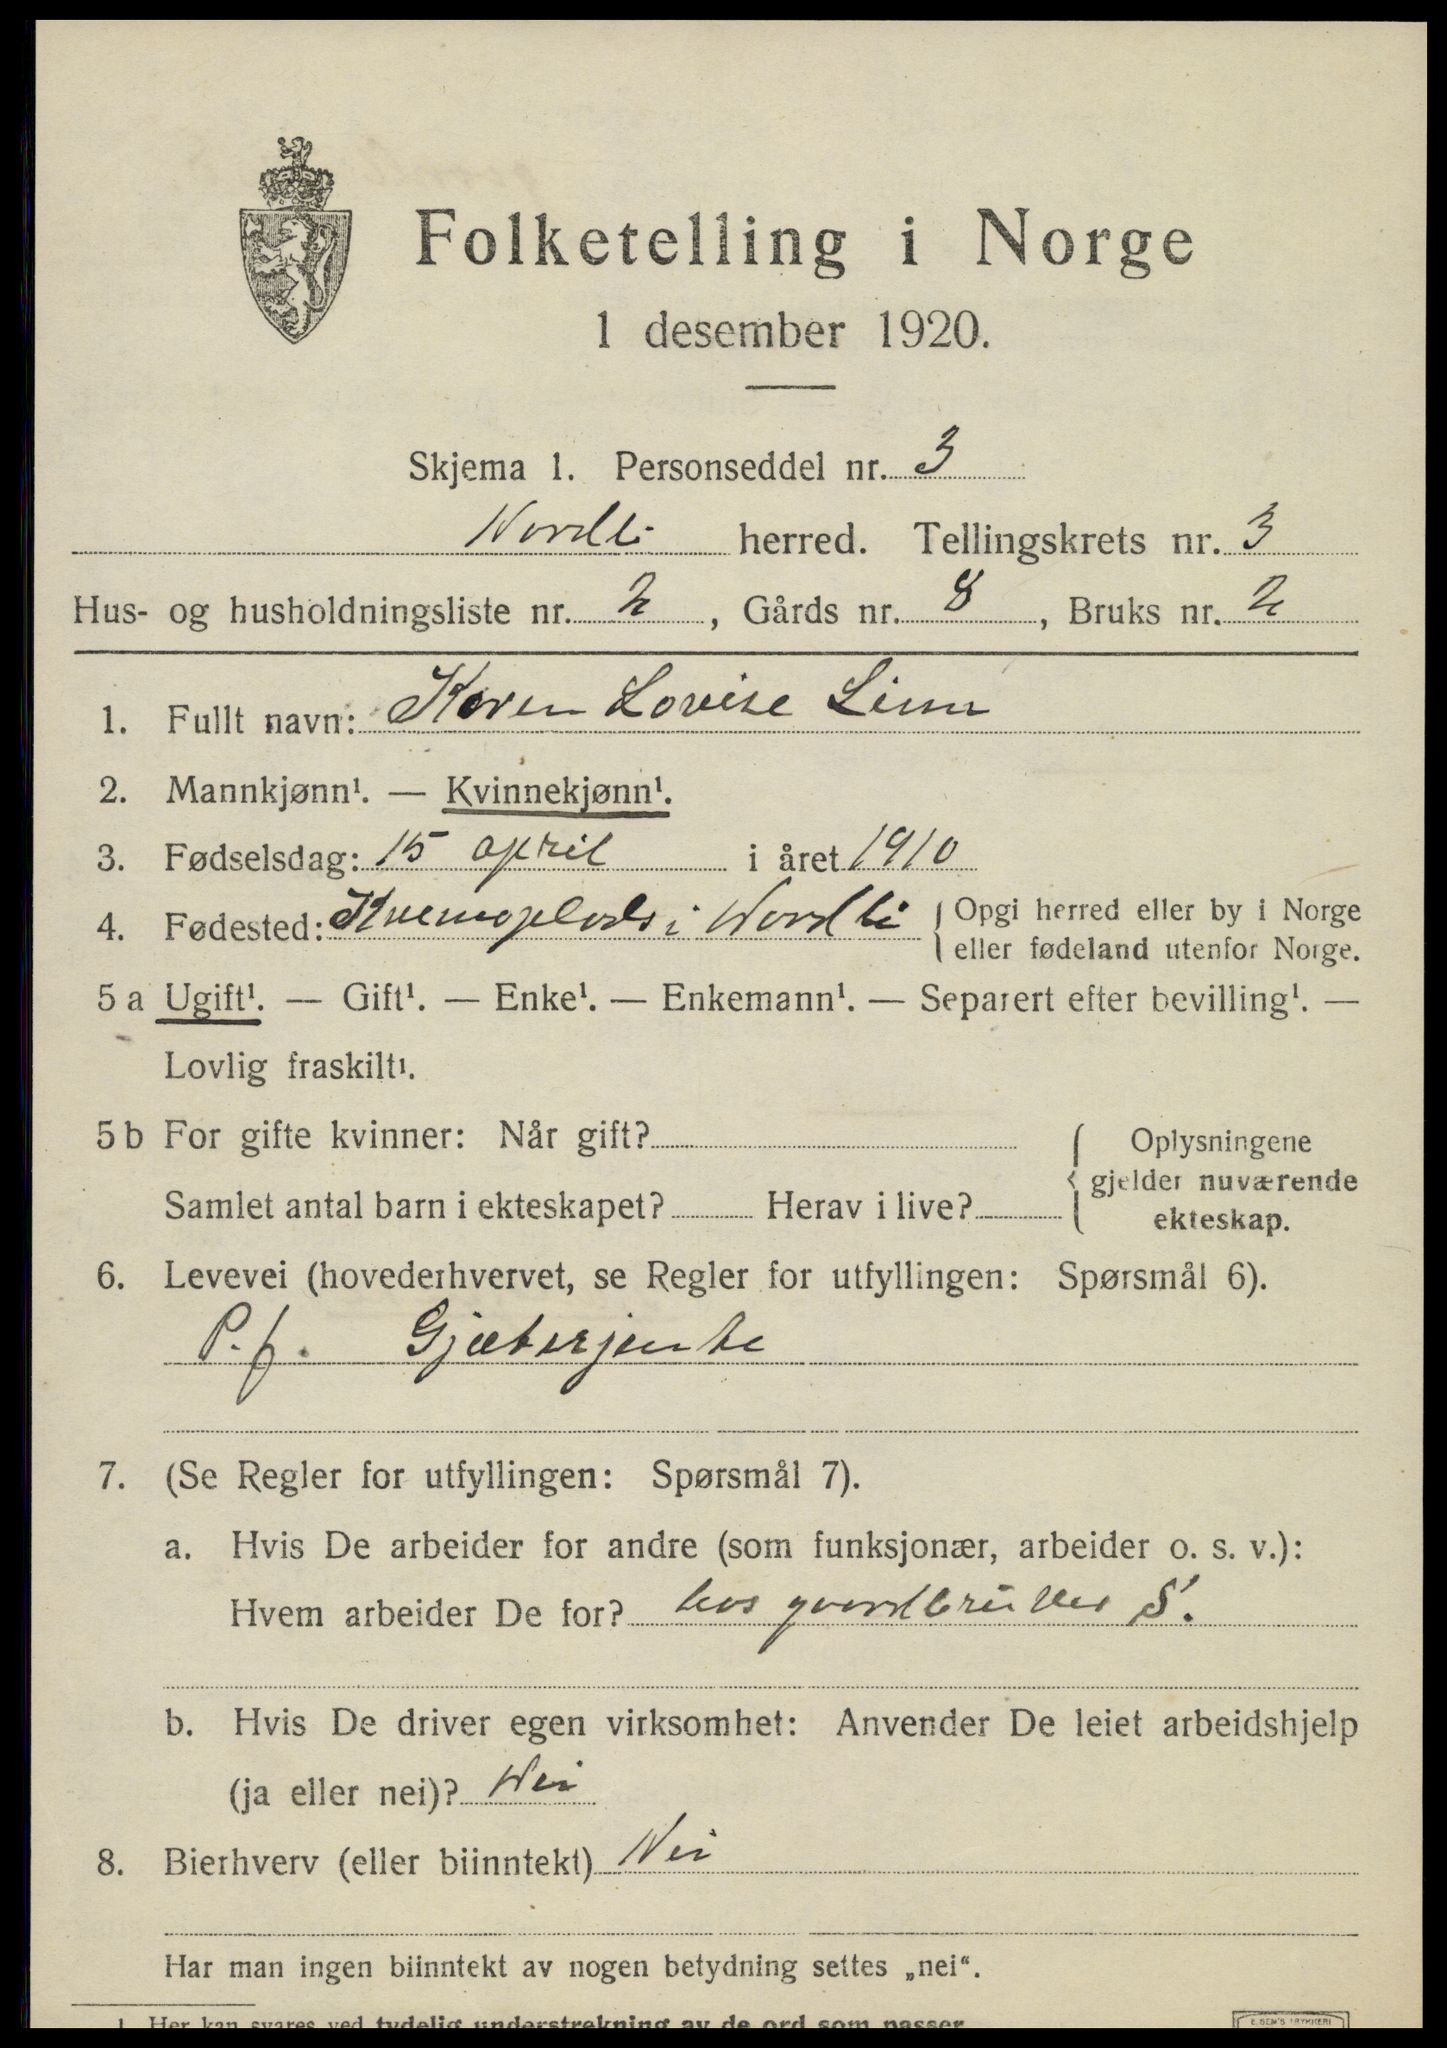 Folketelling i Norge
1 desember 1920.
Skjema 1. Personseddel nr. 3
Nordli herred. Tellingskrets nr. 3
Hus- og husholdningsliste nr. 2, Gårds nr. 8, Bruks nr. 2
1. Fullt navn: Karen Lovise Linn
2. Mannkjønn¹. — Kvinnekjønn¹.
3. Fødselsdag: 15 april i året 1910
4. Fødested: i Nordli { Opgi herred eller by i Norge
eller fødeland utenfor Norge.
5 a Ugift¹. — Gift¹. — Enke¹. — Enkemann¹. — Separert efter bevilling¹. —
Lovlig fraskilt¹.
5 b For gifte kvinner: Når gift?
Samlet antal barn i ekteskapet? Herav i live?
{ Oplysningene
gjelder nuværende
ekteskap.
6. Levevei (hovederhvervet, se Regler for utfyllingen: Spørsmål 6).
P. f. Gjæterjente
7. (Se Regler for utfyllingen: Spørsmål 7).
a. Hvis De arbeider for andre (som funksjonær, arbeider o. s. v.):
Hvem arbeider De for? hos S.
b. Hvis De driver egen virksomhet: Anvender De leiet arbeidshjelp
(ja eller nei)? Nei
8. Bierhverv (eller biinntekt) Nei
Har man ingen biinntekt av nogen betydning settes „nei“.
1 Her kan svares ved tydelig understrekning av de ord som passer